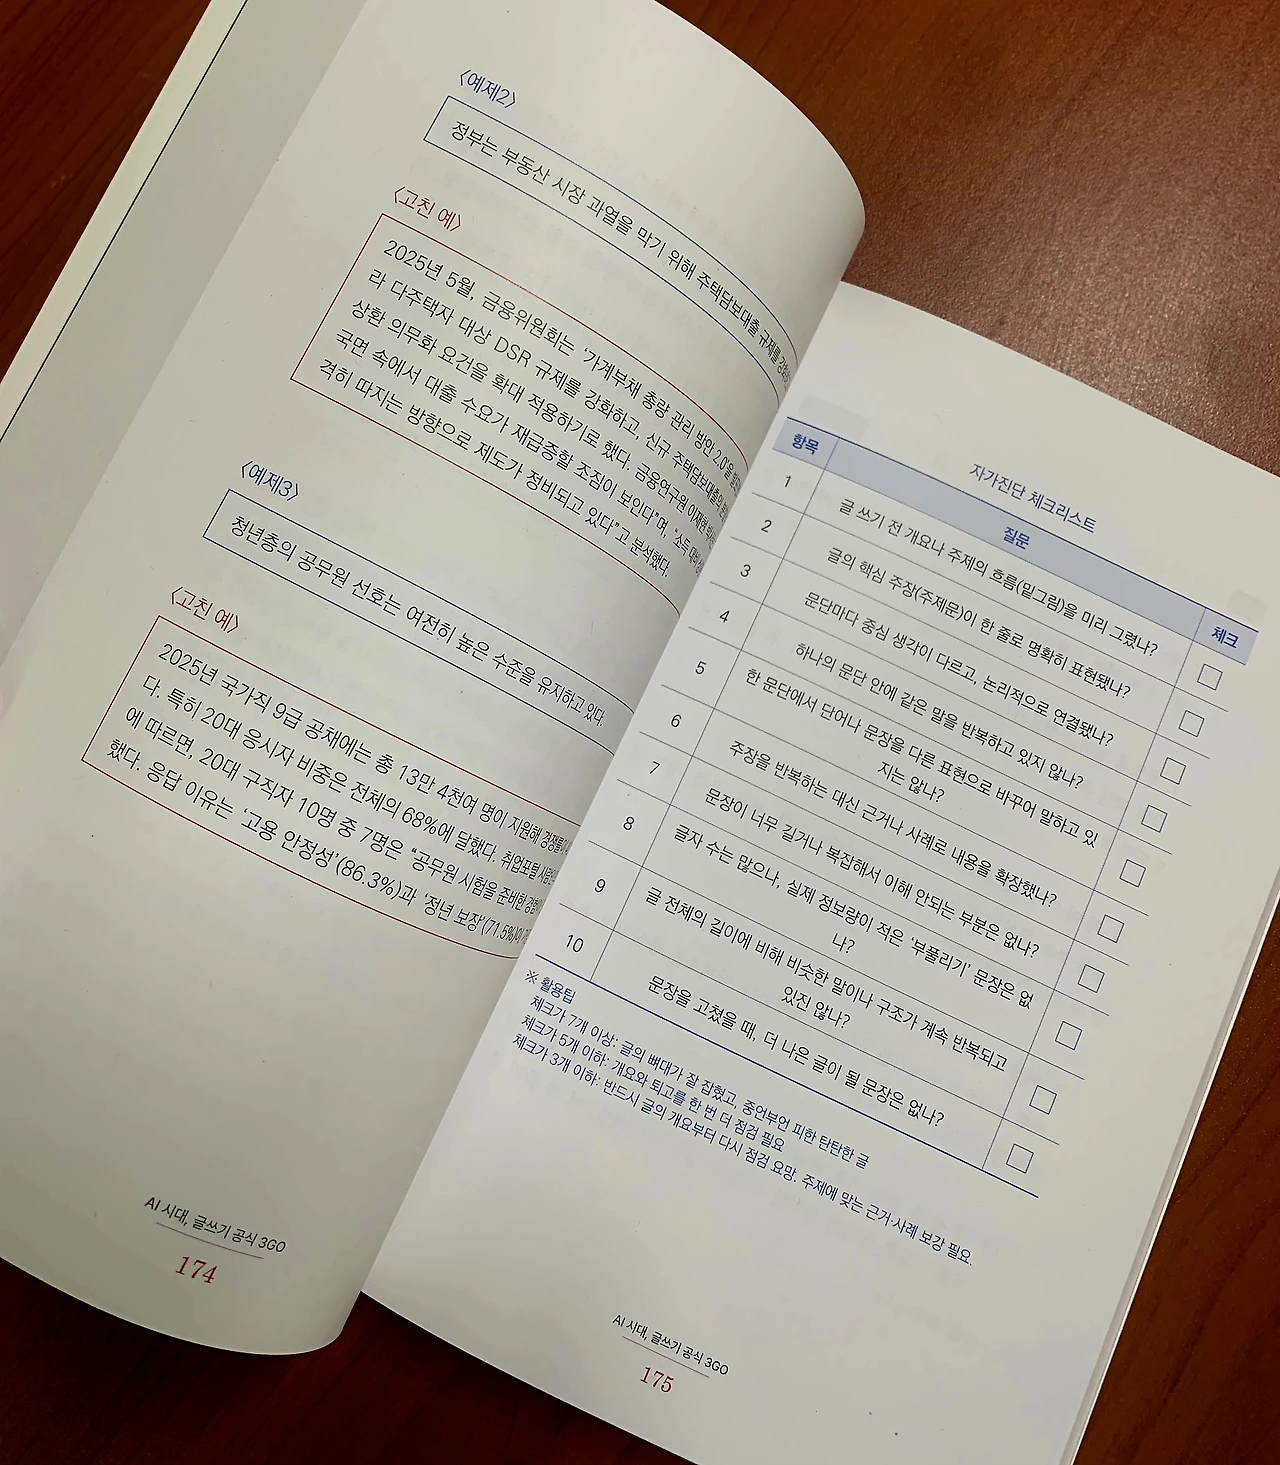 〈예제2〉
정부는 부동산 시장 과열을 막기 위해 주택담보대출 규제를
〈고친 예〉
2025년 5월, 금융위원회는 '가계부채 총량 관리 방안 2.0'을
라 다주택자 대상 DSR 규제를 강화하고, 신규 주택담보대출의
상환 의무화 요건을 확대 적용하기로 했다. 금융연구원 이재현
국면 속에서 대출 수요가 재급증할 조짐이 보인다"며, "소득 대비
격히 따지는 방향으로 제도가 정비되고 있다"고 분석했다.
〈예제3〉
청년층의 공무원 선호는 여전히 높은 수준을 유지하고 있다.
〈고친 예〉
2025년 국가직 9급 공채에는 총 13만 4천여 명이 지원해 경쟁률이
다. 특히 20대 응시자 비중은 전체의 68%에 달했다. 취업포털
에 따르면, 20대 구직자 10명 중 7명은 "공무원 시험을 준비한 경험이
했다. 응답 이유는 '고용 안정성'(86.3%)과 '정년 보장'(71.5%)이
AI 시대, 글쓰기 공식 3GO
174
자가진단 체크리스트
항목 질문 체크
1 글 쓰기 전 개요나 주제의 흐름(밑그림)을 미리 그렸나? □
2 글의 핵심 주장(주제문)이 한 줄로 명확히 표현됐나? □
3 문단마다 중심 생각이 다르고, 논리적으로 연결됐나? □
4 하나의 문단 안에 같은 말을 반복하고 있지 않나? □
5 한 문단에서 단어나 문장을 다른 표현으로 바꾸어 말하고 있
지는 않나? □
6 주장을 반복하는 대신 근거나 사례로 내용을 확장했나? □
7 문장이 너무 길거나 복잡해서 이해 안되는 부분은 없나? □
8 글자 수는 많으나, 실제 정보량이 적은 '부풀리기' 문장은 없
나? □
9 글 전체의 길이에 비해 비슷한 말이나 구조가 계속 반복되고
있진 않나? □
10 문장을 고쳤을 때, 더 나은 글이 될 문장은 없나? □
※ 활용팁
체크가 7개 이상: 글의 뼈대가 잘 잡혔고, 중언부언 피한 탄탄한 글
체크가 5개 이하: 개요와 퇴고를 한 번 더 점검 필요
체크가 3개 이하: 반드시 글의 개요부터 다시 점검 요망. 주제에 맞는 근거·사례 보강 필요.
AI 시대, 글쓰기 공식 3GO
175